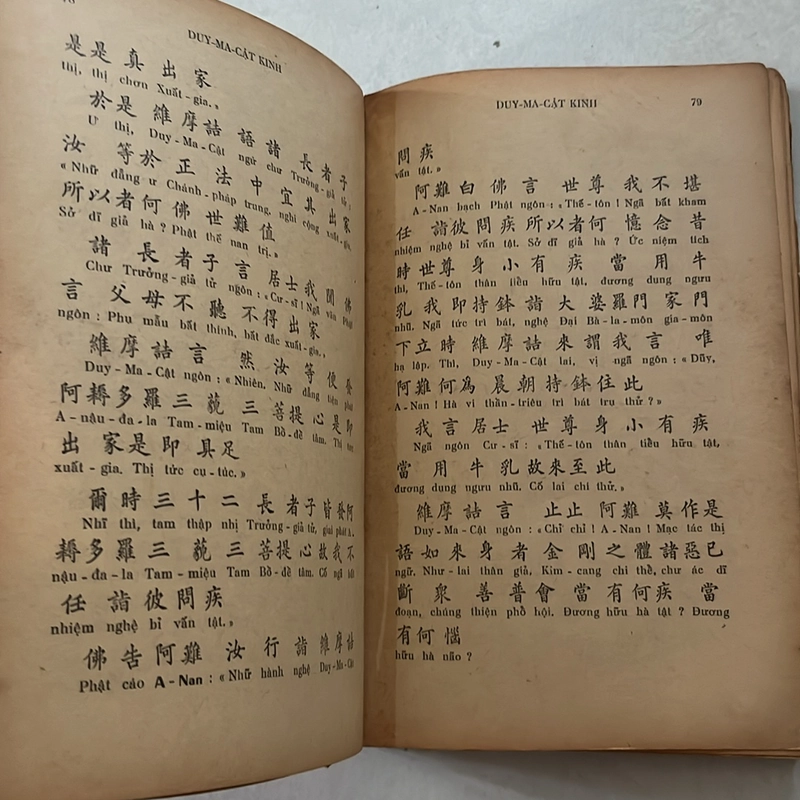 78
DUY-MA-CẬT KINH
是是真出家
thị, thị chơn Xuất-gia. »
於是維摩詰語諸長者子
Ư thị, Duy-Ma-Cật ngứ chư Trưởng-giả tử,
汝等於正法中宜共出家
« Nhữ đẳng ư Chánh-pháp trung, nghi cộng xuất-gia.
所以者何佛世難值
Sở dĩ giả hà ? Phật thế nan trị. »
諸長者子言居士我聞佛
Chư Trưởng-giả tử ngôn : « Cư-sĩ ! Ngã văn Phật
言父母不聽不得出家
ngôn : Phụ mẫu bất thính, bất đắc xuất-gia. »
維摩詰言然汝等便發
Duy-Ma-Cật ngôn : « Nhiên. Nhữ đẳng tiện phát
阿耨多羅三藐三菩提心是即
A-nậu-đa-la Tam-miệu Tam Bồ-đề tâm. Thị tức
出家是即具足
xuất-gia. Thị tức cụ-túc. »
爾時三十二長者子皆發阿
Nhĩ thì, tam thập nhị Trưởng-giả tử, giai phát A-
耨多羅三藐三菩提心故我不
nậu-đa-la Tam-miệu Tam Bồ-đề tâm. Cố ngã bất
任詣彼問疾
nhiệm nghệ bỉ vấn tật. »
佛告阿難汝行詣維摩詰
Phật cáo A-Nan : « Nhữ hành nghệ Duy-Ma-Cật
DUY-MA-CẬT KINH 79
問疾
vấn tật. »
阿難白佛言世尊我不堪
A-Nan bạch Phật ngôn : « Thế-tôn ! Ngã bất kham
任詣彼問疾所以者何憶念昔
nhiệm nghệ bỉ vấn tật. Sở dĩ giả hà ? Ức niệm tích
時世尊身小有疾當用牛
thì, Thế-tôn thân tiểu hữu tật, đương dung ngưu
乳我即持鉢詣大婆羅門家門
nhũ. Ngã tức trì bát, nghệ Đại Bà-la-môn gia-môn
下立時維摩詰來謂我言唯
hạ lập. Thì, Duy-Ma-Cật lai, vị ngã ngôn : « Dũy,
阿難何為晨朝持鉢住此
A-Nan ! Hà vi thần-triêu trì bát trụ thử ? »
我言居士世尊身小有疾
Ngã ngôn Cư-sĩ : « Thế-tôn thân tiểu hữu tật,
當用牛乳故來至此
đương dung ngưu nhũ. Cố lai chí thử. »
維摩詰言止止阿難莫作是
Duy-Ma-Cật ngôn : « Chỉ chỉ ! A-Nan ! Mạc tác thị
語如來身者金剛之體諸惡已
ngữ. Như-lai thân giả, Kim-cang chi thể, chư ác dĩ
斷眾善普會當有何疾當
đoạn, chúng thiện phổ hội. Đương hữu hà tật ? Đương
有何惱
hữu hà não ?